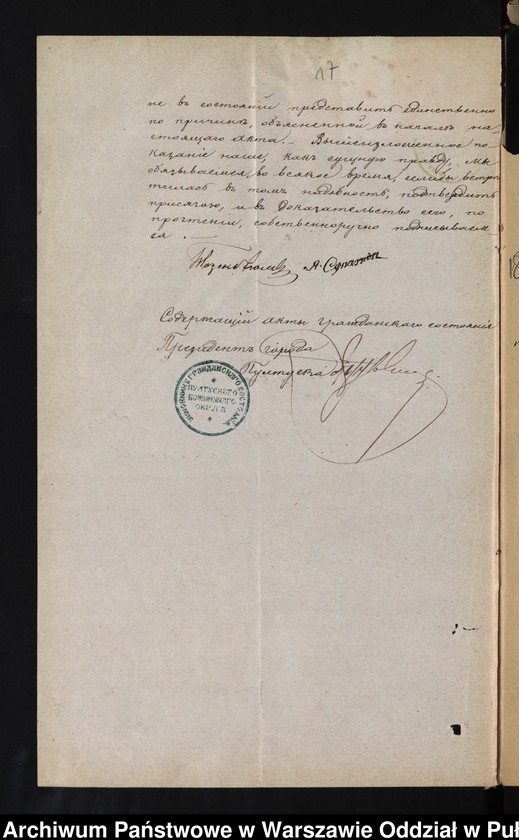 17
не въ состояніи представить единственно
по причинѣ, объясненной въ началѣ на-
стоящаго акта. — Вышеизложенное по-
казаніе наше, какъ сущую правду, мы
обязываемся, во всякое время, если бы встрѣ-
тилась въ томъ надобность, подтвердить
присягою, и въ доказательство сего, по
прочтеніи, собственноручно подписываем-
ся. —
Содержащій акты гражданскаго состоянія
Президентъ города
Пултуска
ЧИНОВНИКЪ ГРАЖДАНСКАГО СОСТОЯНІЯ
ПУЛТУСКАГО
БОЖНИЧНАГО
ОКРУГА
18
Archiwum Państwowe w Warszawie Oddział w Puł